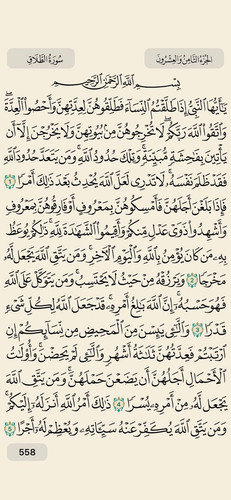 سُورَةُ الطَّلَاقِ
الجُزْءُ الثَّامِنُ وَالعِشْرُونَ
بِسْمِ ٱللَّهِ ٱلرَّحْمَٰنِ ٱلرَّحِيمِ
يَٰٓأَيُّهَا ٱلنَّبِيُّ إِذَا طَلَّقْتُمُ ٱلنِّسَآءَ فَطَلِّقُوهُنَّ لِعِدَّتِهِنَّ وَأَحْصُوا۟ ٱلْعِدَّةَۖ
وَٱتَّقُوا۟ ٱللَّهَ رَبَّكُمْۖ لَا تُخْرِجُوهُنَّ مِنۢ بُيُوتِهِنَّ وَلَا يَخْرُجْنَ إِلَّآ أَن
يَأْتِينَ بِفَٰحِشَةٍ مُّبَيِّنَةٍۚ وَتِلْكَ حُدُودُ ٱللَّهِۚ وَمَن يَتَعَدَّ حُدُودَ ٱللَّهِ
فَقَدْ ظَلَمَ نَفْسَهُۥۚ لَا تَدْرِى لَعَلَّ ٱللَّهَ يُحْدِثُ بَعْدَ ذَٰلِكَ أَمْرًا ١
فَإِذَا بَلَغْنَ أَجَلَهُنَّ فَأَمْسِكُوهُنَّ بِمَعْرُوفٍ أَوْ فَارِقُوهُنَّ بِمَعْرُوفٍ
وَأَشْهِدُوا۟ ذَوَىْ عَدْلٍ مِّنكُمْ وَأَقِيمُوا۟ ٱلشَّهَٰدَةَ لِلَّهِۚ ذَٰلِكُمْ يُوعَظُ
بِهِۦ مَن كَانَ يُؤْمِنُ بِٱللَّهِ وَٱلْيَوْمِ ٱلْءَاخِرِۚ وَمَن يَتَّقِ ٱللَّهَ يَجْعَل لَّهُۥ
مَخْرَجًا ٢ وَيَرْزُقْهُ مِنْ حَيْثُ لَا يَحْتَسِبُۚ وَمَن يَتَوَكَّلْ عَلَى ٱللَّهِ
فَهُوَ حَسْبُهُۥٓۚ إِنَّ ٱللَّهَ بَٰلِغُ أَمْرِهِۦۚ قَدْ جَعَلَ ٱللَّهُ لِكُلِّ شَىْءٍ
قَدْرًا ٣ وَٱلَّٰٓـِٔى يَئِسْنَ مِنَ ٱلْمَحِيضِ مِن نِّسَآئِكُمْ إِنِ
ٱرْتَبْتُمْ فَعِدَّتُهُنَّ ثَلَٰثَةُ أَشْهُرٍ وَٱلَّٰٓـِٔى لَمْ يَحِضْنَۚ وَأُو۟لَٰتُ
ٱلْأَحْمَالِ أَجَلُهُنَّ أَن يَضَعْنَ حَمْلَهُنَّۚ وَمَن يَتَّقِ ٱللَّهَ
يَجْعَل لَّهُۥ مِنْ أَمْرِهِۦ يُسْرًا ٤ ذَٰلِكَ أَمْرُ ٱللَّهِ أَنزَلَهُۥٓ إِلَيْكُمْۚ
وَمَن يَتَّقِ ٱللَّهَ يُكَفِّرْ عَنْهُ سَيِّـَٔاتِهِۦ وَيُعْظِمْ لَهُۥٓ أَجْرًا ٥
558